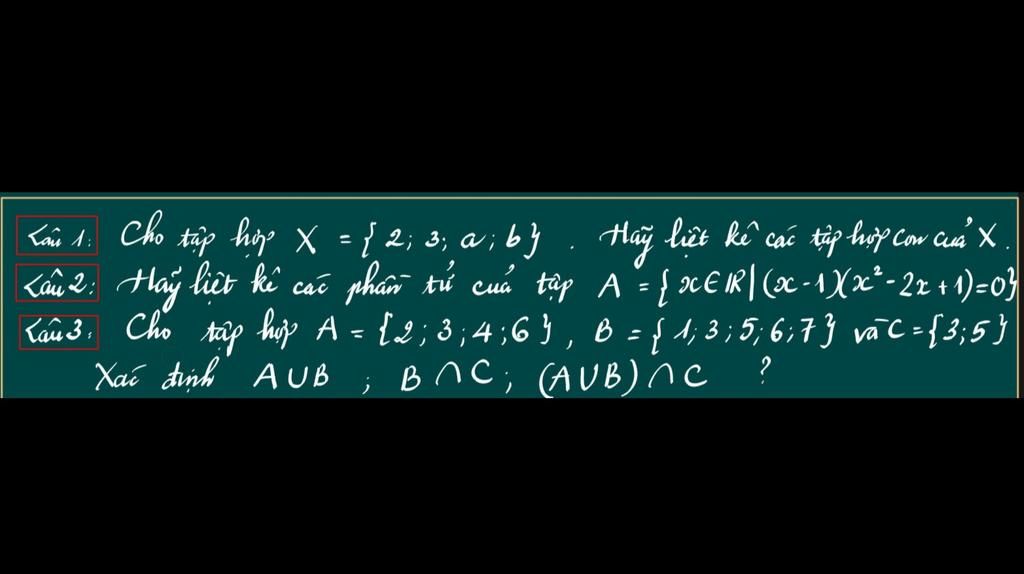 Câu 1: Cho tập hợp X = { 2; 3; a; b } . Hãy liệt kê các tập hợp con của X.
Câu 2: Hãy liệt kê các phần tử của tập A = { x ∈ ℝ | (x - 1)(x² - 2x + 1) = 0}
Câu 3: Cho tập hợp A = { 2; 3; 4; 6 }, B = { 1; 3; 5; 6; 7 } và C = { 3; 5 }
Xác định A ∪ B ; B ∩ C ; (A ∪ B) ∩ C ?